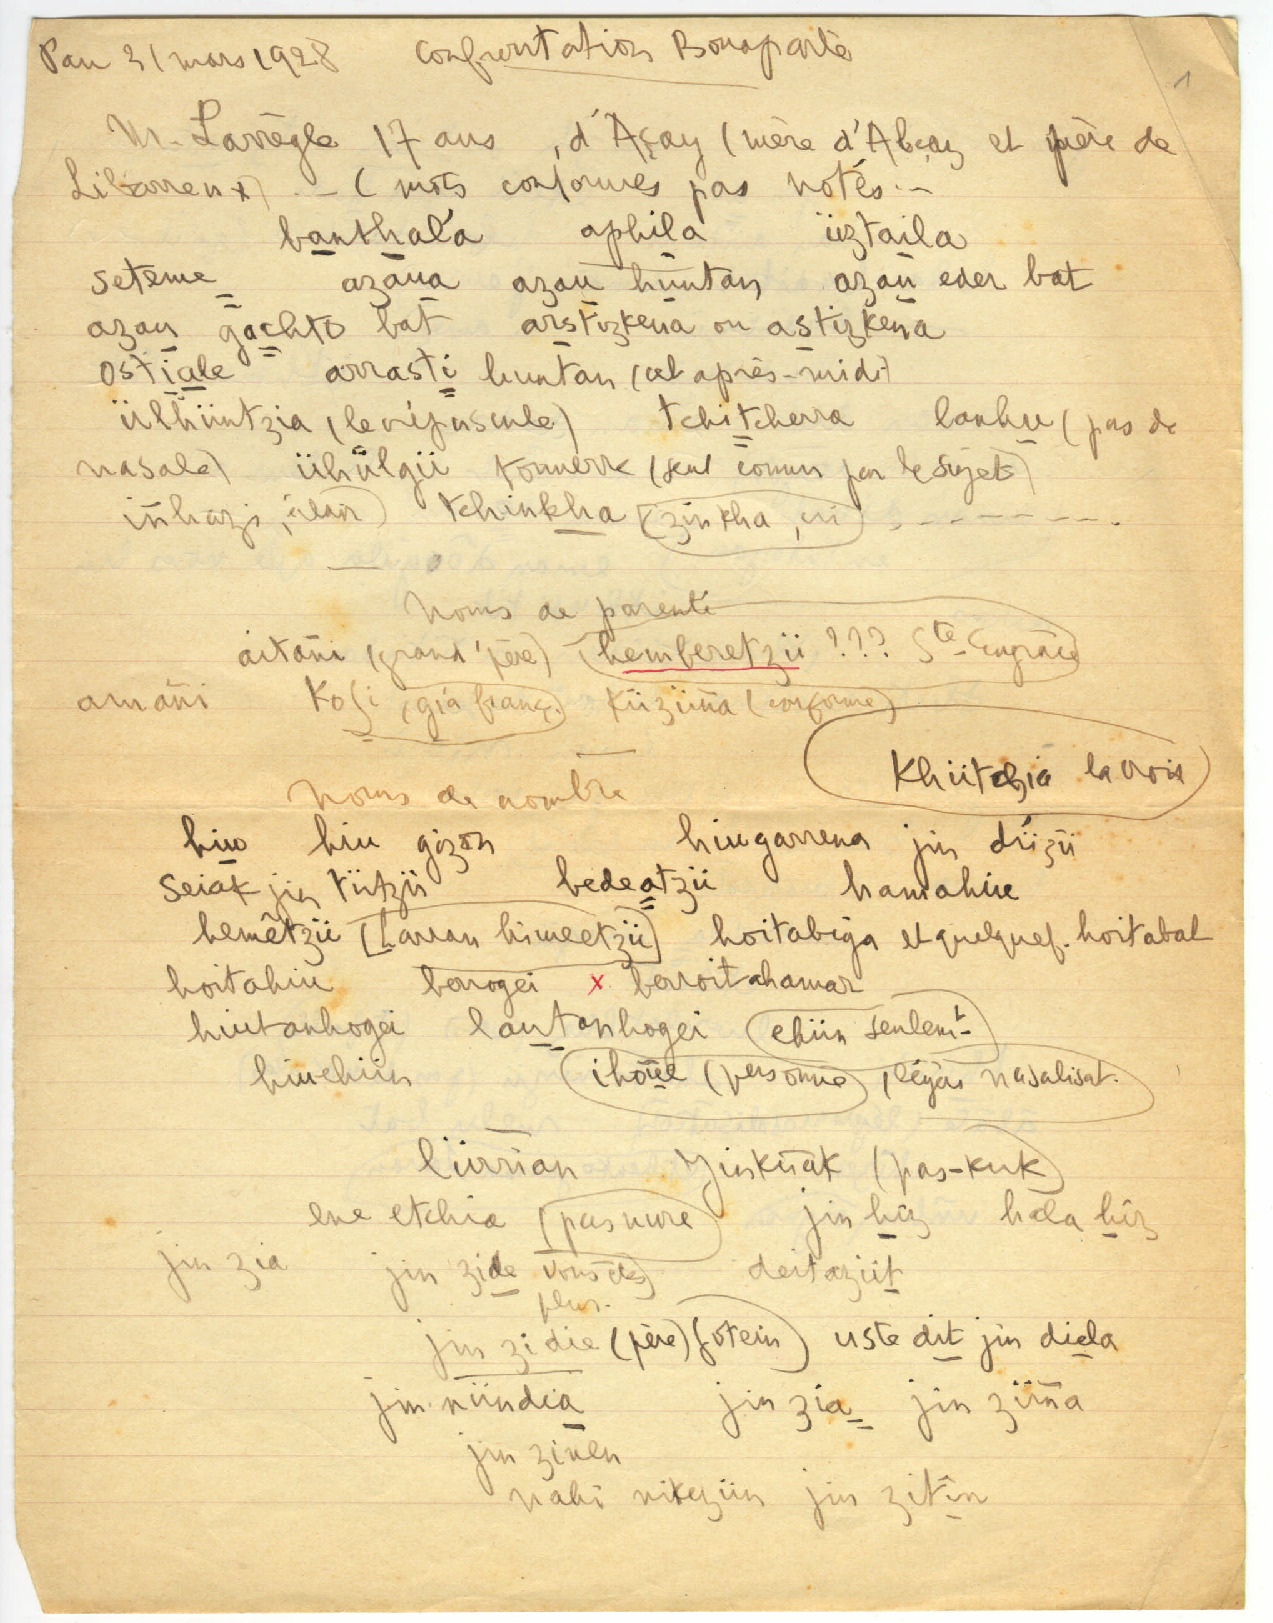 Pau 31 mars 1928 Confrontation Bonaparte
1
M. Larrègle 17 ans, d'Açay (mère d'Abçay et père de
Libarrenx) -- (mots conformes pas notés --
banthala aphila üztaila
seteme azaua azau huntan azau eder bat
azau gachto bat arstizkena ou astizkena
ostiale arrasti huntan (cet après-midi)
ülhüntzia (le crépuscule) tchitcherra lanhu (pas de
nasale) ühülgü tonnerre (seul connu par le sujet)
iñhazi, tchinkha (zinkha, cri) --------.
Noms de parenté
aitañi (grand'père) (hemberetzü ??? Ste Engrâce)
amañi Kosi, (gia franç.) Küzüña (conforme)
Khütchia la croix
Noms de nombre
hiu hiu gizon hiugarrena jin düzü
seiak jin tützü bedeatzü hamahiu
hemêtzü [Larrau himeetzü] hoitabiga et quelquef. hoitabat
hoitahiu berrogei x berroitahamar
hiutanhogei lautanhogei (ehün seulemt)
hiuehün ihoüe (personne), légèr nasalisat.
lürrian Yinkuak (pas-kuk)
ene etchia (pas nure) jin hiz hola hiz
jin zia jin zide vous êtes) deitaziit
plur.
jin zidie (père) (otein) uste dit jin diela
jin nündia jin zia jin ziña
jin zinen
nahi nikezün jin zitin